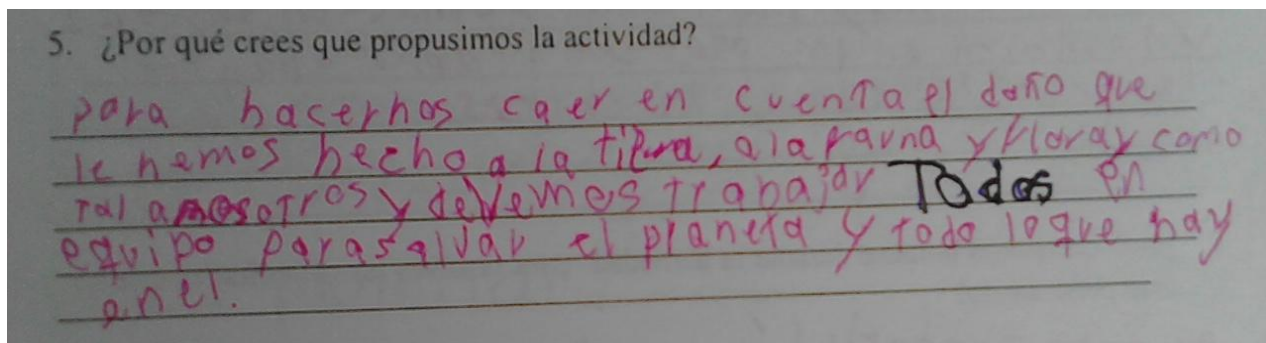 5. ¿Por qué crees que propusimos la actividad?
para hacernos caer en cuenta el daño que
le hemos hecho a la tierra, a la fauna y flora y como
tal a nosotros y devemos trabajar Todos en
equipo para salvar el planeta y todo lo que hay
en el.